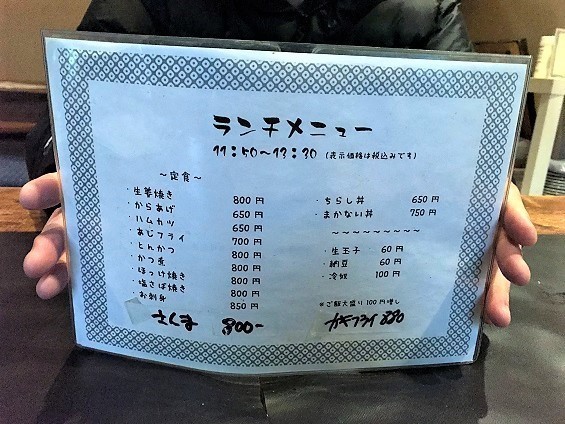 ランチメニュー
11:50〜13:30 (表示価格は税込みです)
〜定食〜
・生姜焼き 800円
・からあげ 650円
・ハムカツ 650円
・あじフライ 700円
・とんかつ 800円
・かつ煮 800円
・ほっけ焼き 800円
・塩さば焼き 800円
・お刺身 850円
さんま 800-
・ちらし丼 650円
・まかない丼 750円
〜〜〜〜〜〜〜〜〜
・生玉子 60円
・納豆 60円
・冷奴 100円
※ご飯大盛り100円増し
カキフライ 880